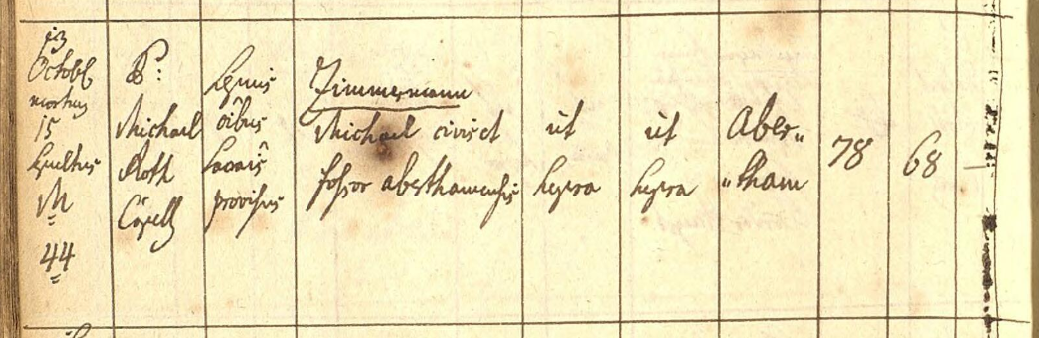 13
Octobr
mortuus
15
Sepultus
M
44
P:
Michael
Roth
Capell
Lejunis
oîbus
Sacris
provisus
Zimmermann
Michael civis et
fossor aberthamensis
ut
supra
ut
supra
Aber„
„tham
78
68